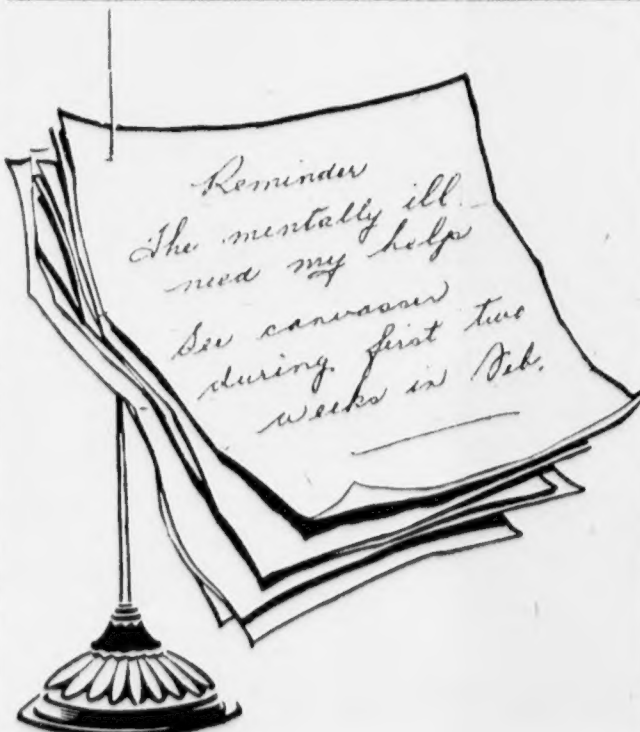 Reminder
The mentally ill
need my help
See canvasser
during first two
weeks in Feb.